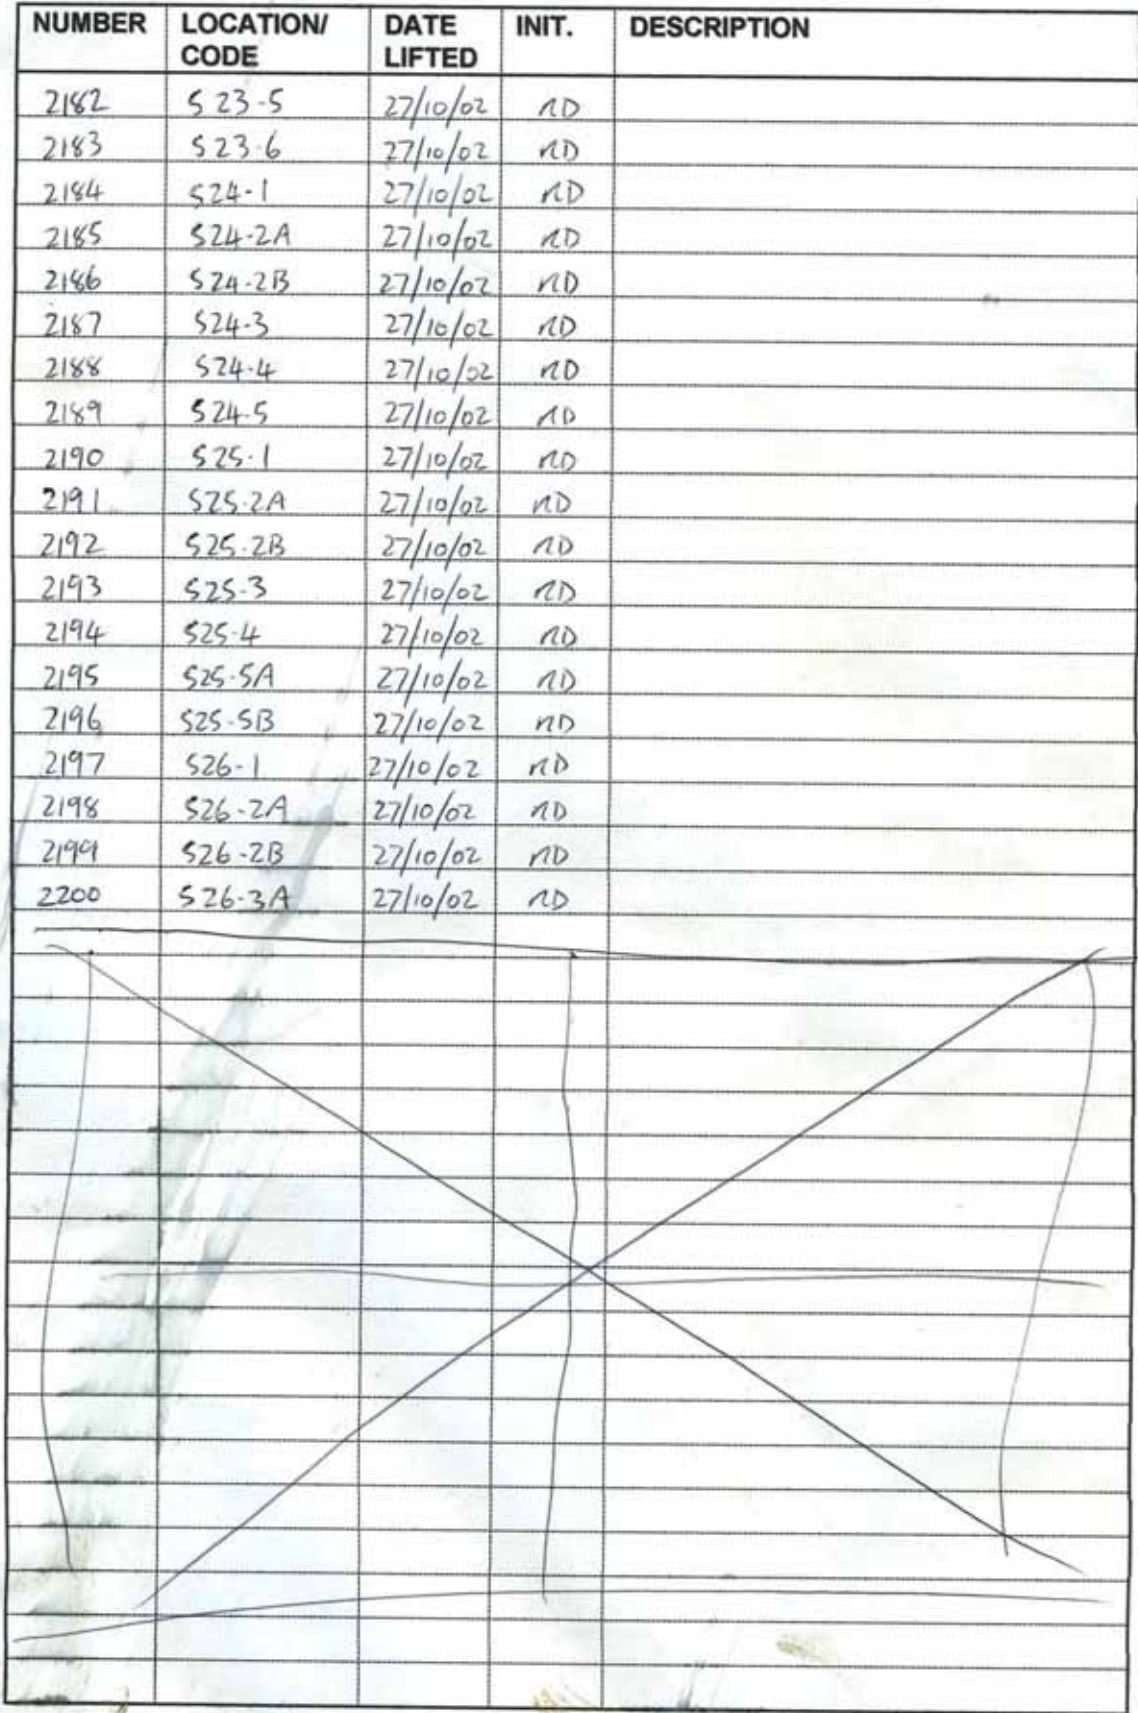 NUMBER LOCATION/ CODE DATE LIFTED INIT. DESCRIPTION
2182 S23-5 27/10/02 ND
2183 S23-6 27/10/02 ND
2184 S24-1 27/10/02 ND
2185 S24-2A 27/10/02 ND
2186 S24-2B 27/10/02 ND
2187 S24-3 27/10/02 ND
2188 S24-4 27/10/02 ND
2189 S24-5 27/10/02 ND
2190 S25-1 27/10/02 ND
2191 S25-2A 27/10/02 ND
2192 S25-2B 27/10/02 ND
2193 S25-3 27/10/02 ND
2194 S25-4 27/10/02 ND
2195 S25-5A 27/10/02 ND
2196 S25-5B 27/10/02 ND
2197 S26-1 27/10/02 ND
2198 S26-2A 27/10/02 ND
2199 S26-2B 27/10/02 ND
2200 S26-3A 27/10/02 ND